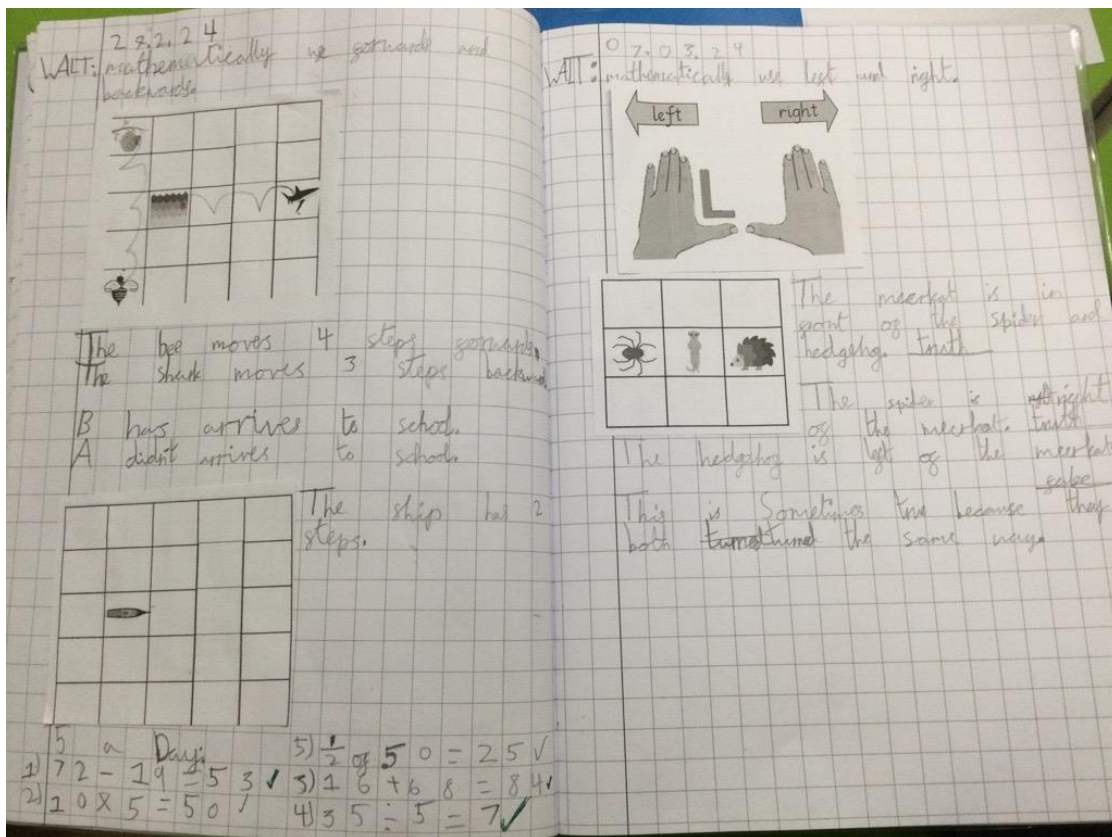 28.2.24
WALT: mathematically use forwards and
backwards.
The bee moves 4 steps forwards.
The shark moves 3 steps backward
B has arrives to school.
A didn't arrives to school.
The ship has 2
steps.
5 a Day:
1) 72 - 19 = 53 ✓
2) 10 x 5 = 50 ✓
5) 1/2 of 50 = 25 ✓
3) 16 + 68 = 84 ✓
4) 35 ÷ 5 = 7 ✓
07.03.24
WALT: mathematically use left and right.
left right
L
The meerkat is in
front of the spider and
hedgehog. truth
The spider is right
of the meerkat. truth
The hedgehog is left of the meerkat
false
This is Sometimes true because they
both the same way.